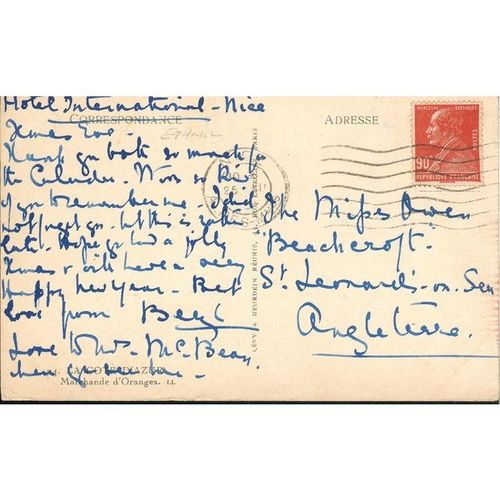 Hotel International - Nice
CORRESPONDANCE
Xmas Eve -
Thank you both so much for
the Calendar. Was so kind
of you to remember me. I did
not forget you but this is rather
late. Hope you had a jolly
Xmas & will have a very
happy new year - Best
love from Beryl
Love to Mrs. McBean
when you see her -
LA COTE D'AZUR
Marchande d'Oranges. LL
LEVY & NEURDEIN RÉUNIS, PARIS
ADRESSE
MARCELIN BERTHELOT
POSTES
90c
REPUBLIQUE FRANÇAISE
The Misses Owen
"Beachcroft"
St. Leonards-on-Sea
Angleterre.